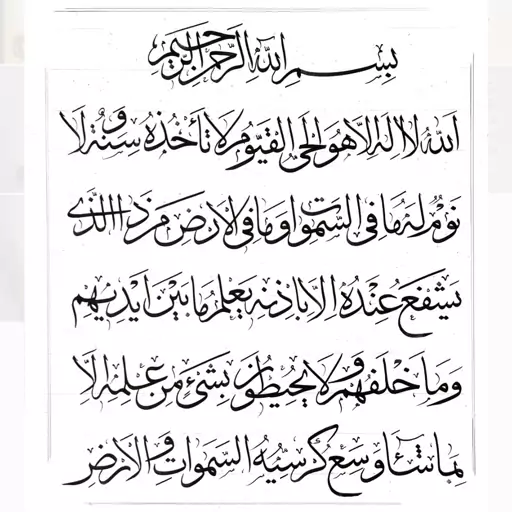 بسم الله الرحمن الرحيم
الله لا اله الا هو الحي القيوم لا تأخذه سنة ولا
نوم له ما في السموات وما في الارض من ذا الذي
يشفع عنده الا باذنه يعلم ما بين ايديهم
وما خلفهم ولا يحيطون بشيء من علمه الا
بما شاء وسع كرسيه السموات والارض